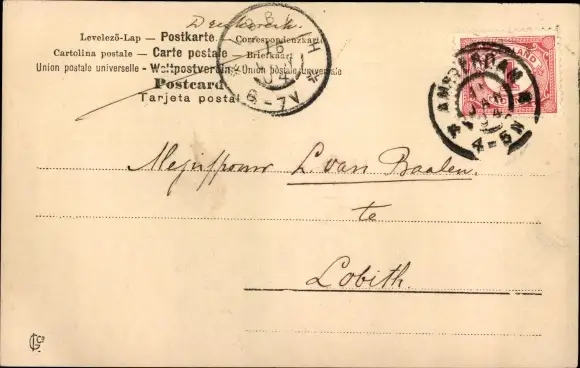 Drukwerk.
Levelező-Lap — Postkarte — Correspondenzkarte
Cartolina postale — Carte postale — Briefkaart
Union postale universelle - Weltpostverein - Union postale universelle
Postcard
Tarjeta postal
6-7V
AMSTERDAM
JAN
4-5N
Mejuffrouw L. van Baalen.
te
Lobith.